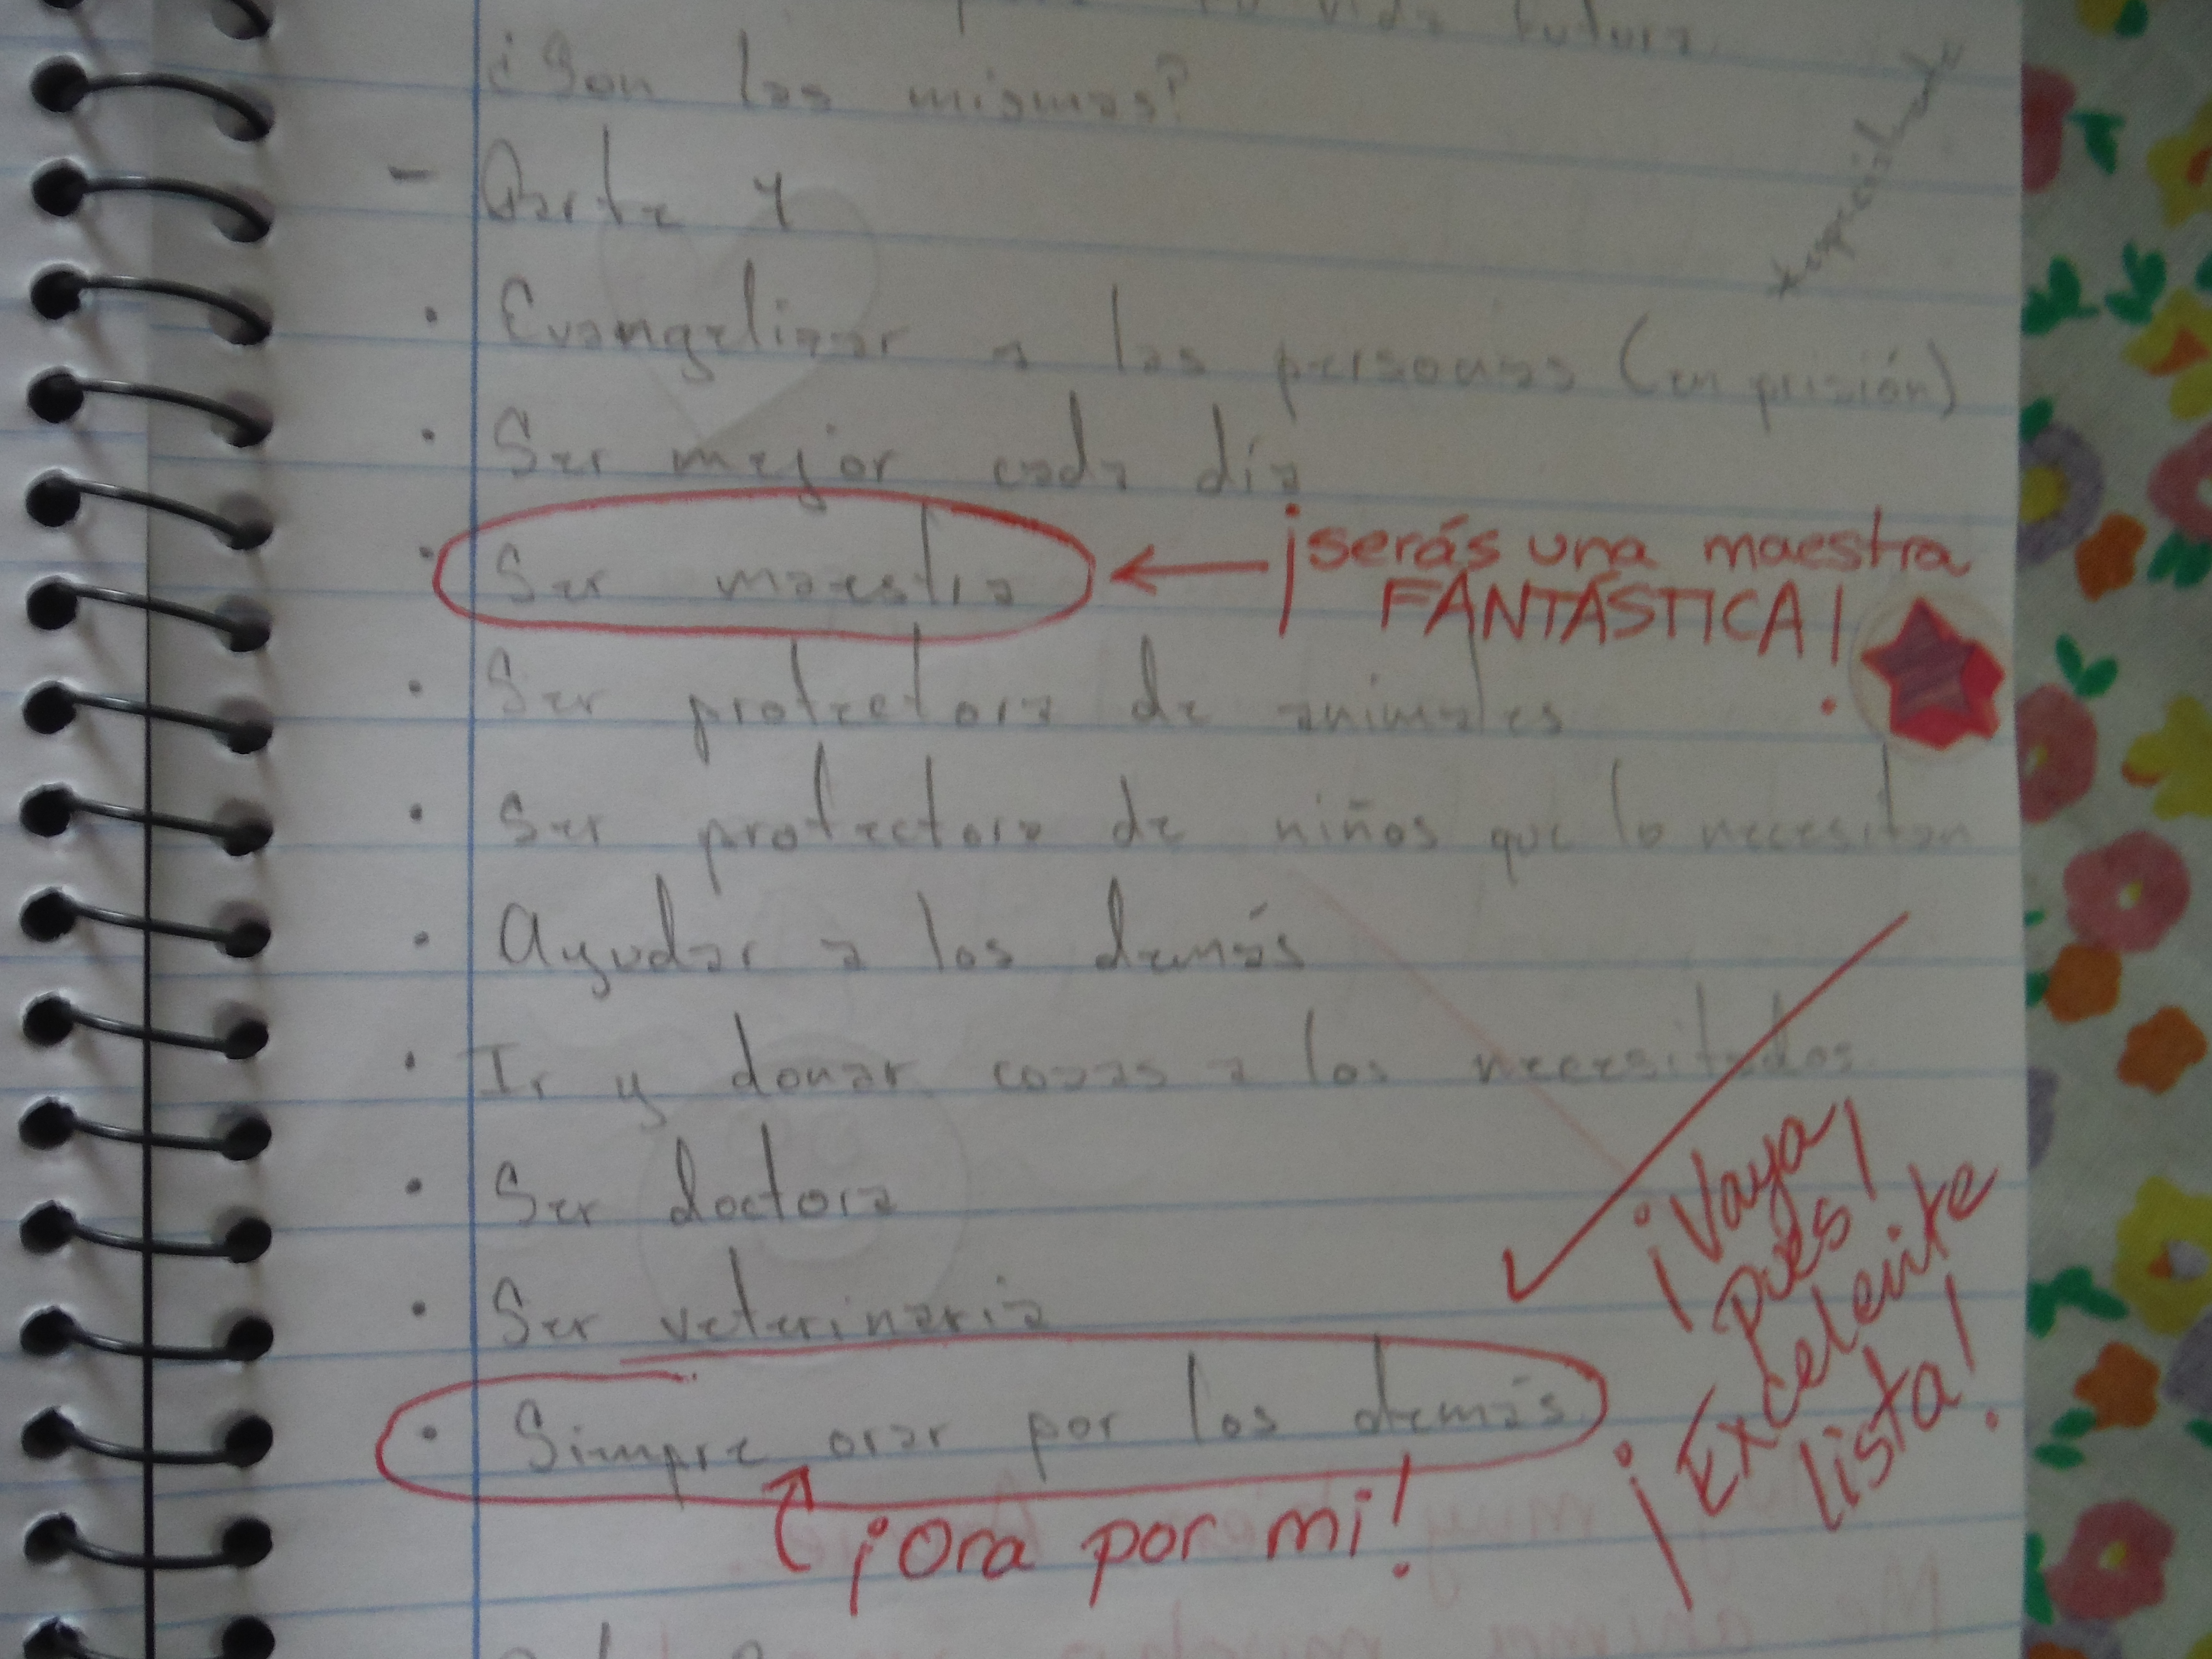 vida futura
¿Son las mismas?
- Parte 1
· Evangelizar a las personas (en prisión)
· Ser mejor cada día
· Ser maestra
¡serás una maestra
FANTÁSTICA!
· Ser protectora de animales
· Ser protectora de niños que lo necesitan
· Ayudar a los demás
· Ir y donar cosas a los necesitados
· Ser doctora
· Ser veterinaria
· Simpre orar por los demás
¡Ora por mi!
¡Vaya
pues!
¡Excelente
lista!